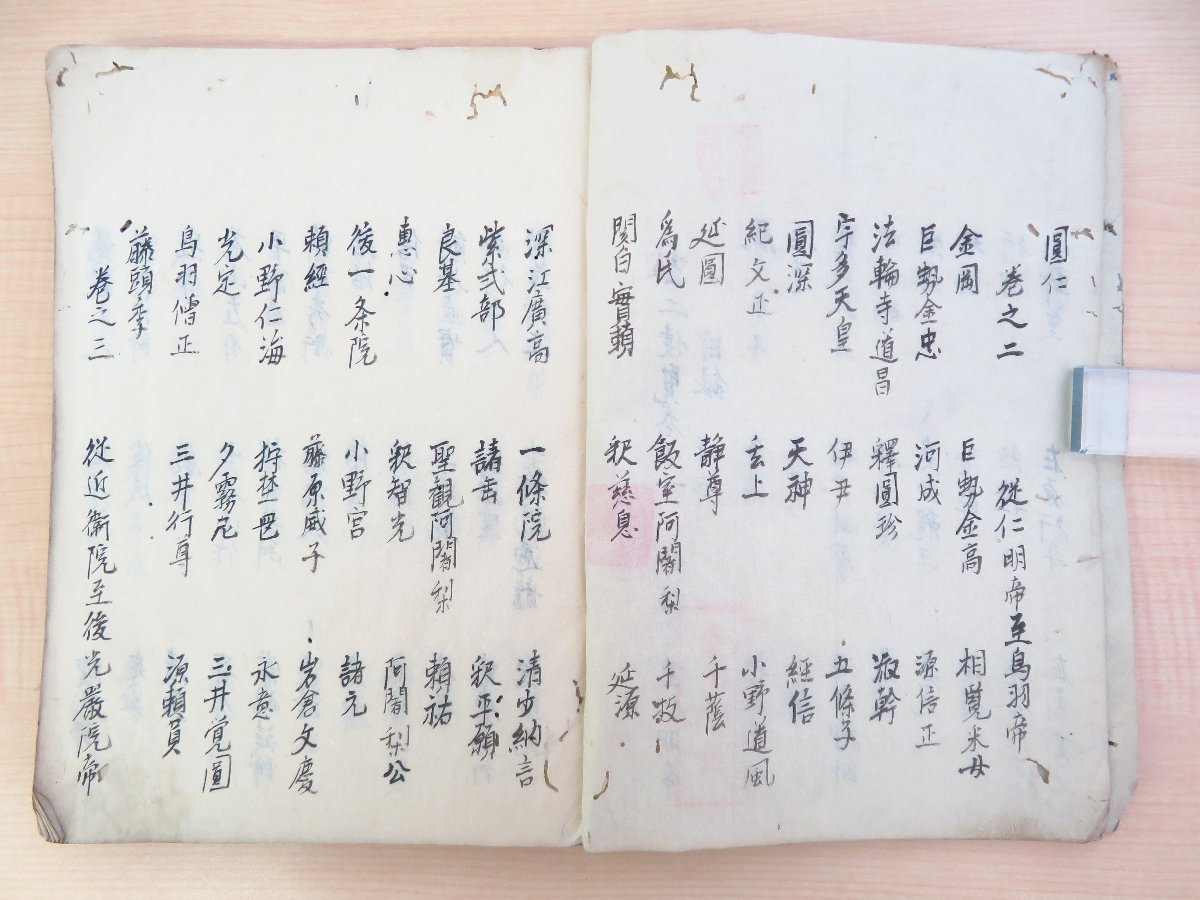 圓仁
巻之二 從仁明帝至鳥羽帝
金岡 巨勢金高 相覧 米女
巨勢金忠 河成 源信正
法輪寺道昌 釋圓珍 淑幹
宇多天皇 伊尹 五條子
圓深 天神 經信
紀文正 玄上 小野道風
延圓 静尊 千蔭
爲氏 飯室阿闍梨 千枝
関白實頼 釈慈息 延源
深江廣高 一條院 清少納言
紫式部 諸 釈 願
良基 聖観阿闍梨 頼祐
惠心 釈智光 阿闍梨公
後一条院 小野宮 諸元
頼經 藤原威子 岩倉文慶
小野仁海 永意
光定 夕霧尼 三井覚圓
鳥羽僧正 三井行尊 源頼員
藤顕季
巻之三 從近衛院至後光嚴院帝